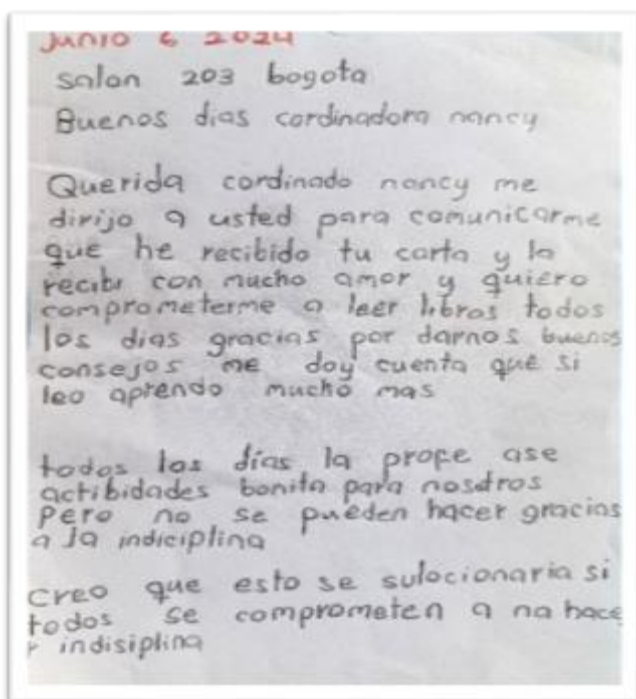 junio 6 2024
salon 203 bogota
Buenos dias cordinadora nancy
Querida cordinado nancy me
dirijo a usted para comunicarme
que he recibido tu carta y la
recibi con mucho amor y quiero
comprometerme a leer libros todos
los dias gracias por darnos buenos
consejos me doy cuenta que si
leo aprendo mucho mas
todos los días la profe ase
actibidades bonita para nosotros
Pero no se pueden hacer gracias
a la indiciplina
creo que esto se sulocionaria si
todos se comprometen a na hace
r indisiplina